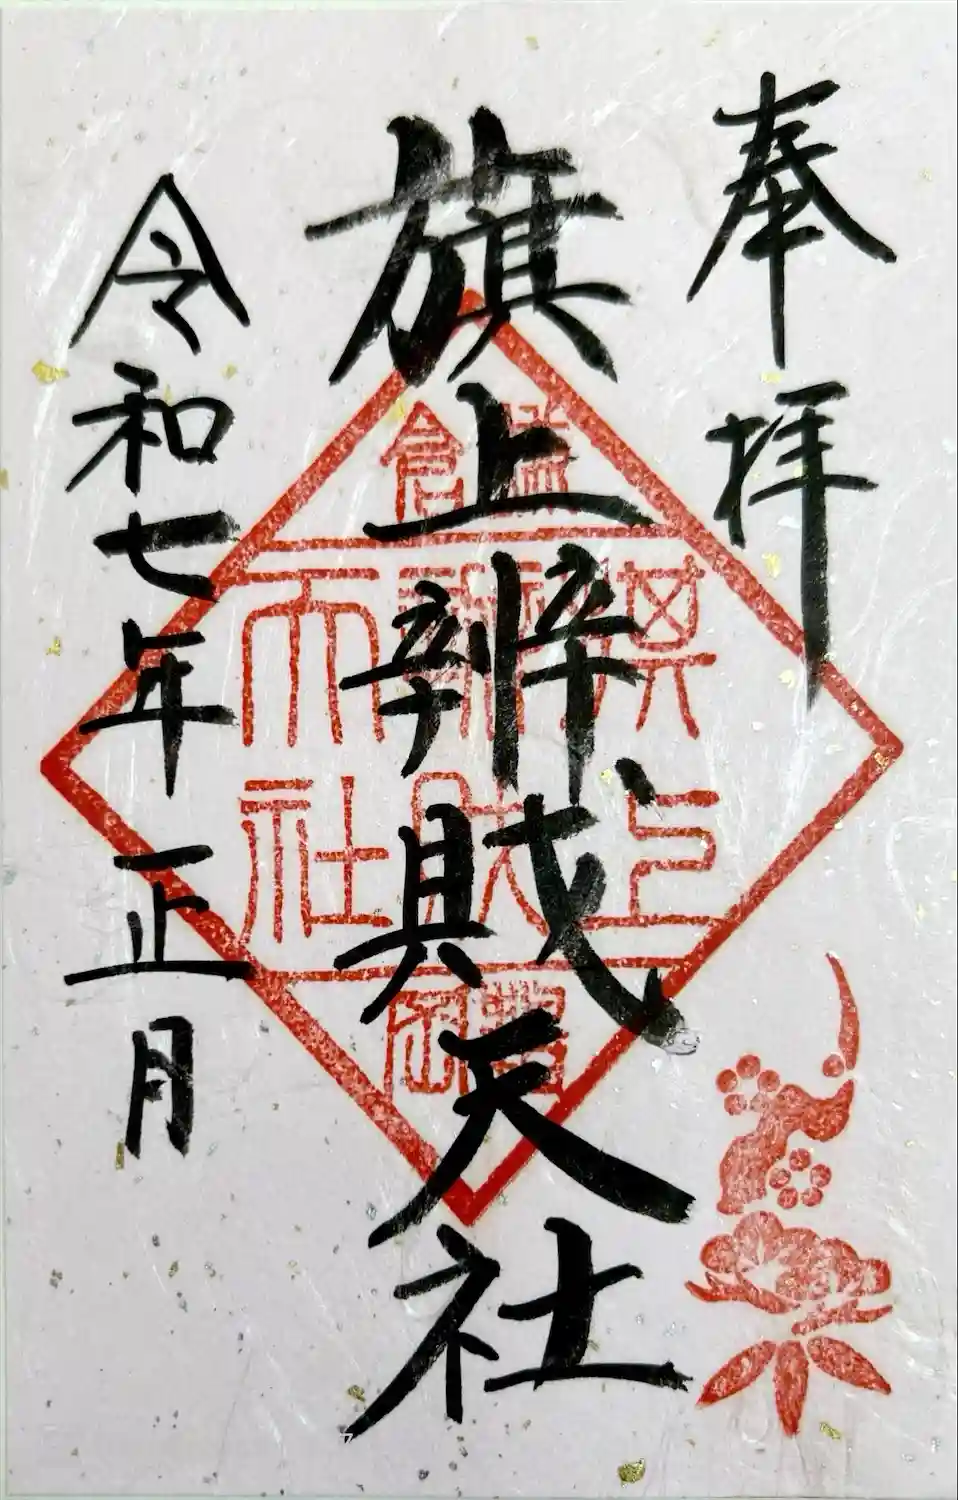 奉拝
旗上辨財天社
令和七年正月
鎌倉
旗上
辨財
天社